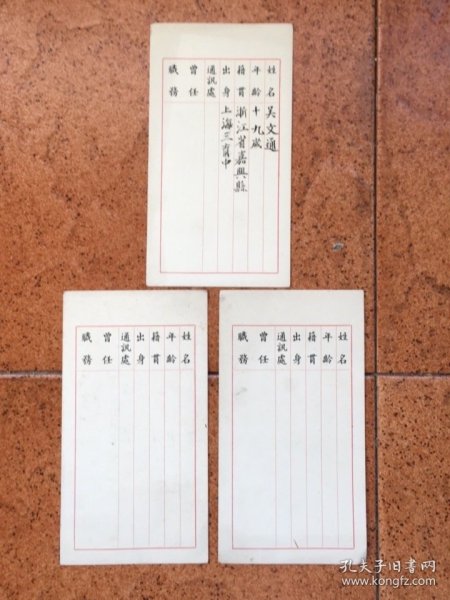 姓名 吴文通
年龄 十九歲
籍貫 浙江省嘉興縣
出身 上海三育中
通訊處
曾任
職務
姓名
年齡
籍貫
出身
通訊處
曾任
職務
姓名
年齡
籍貫
出身
通訊處
曾任
職務
孔夫子旧书网
www.kongfz.com